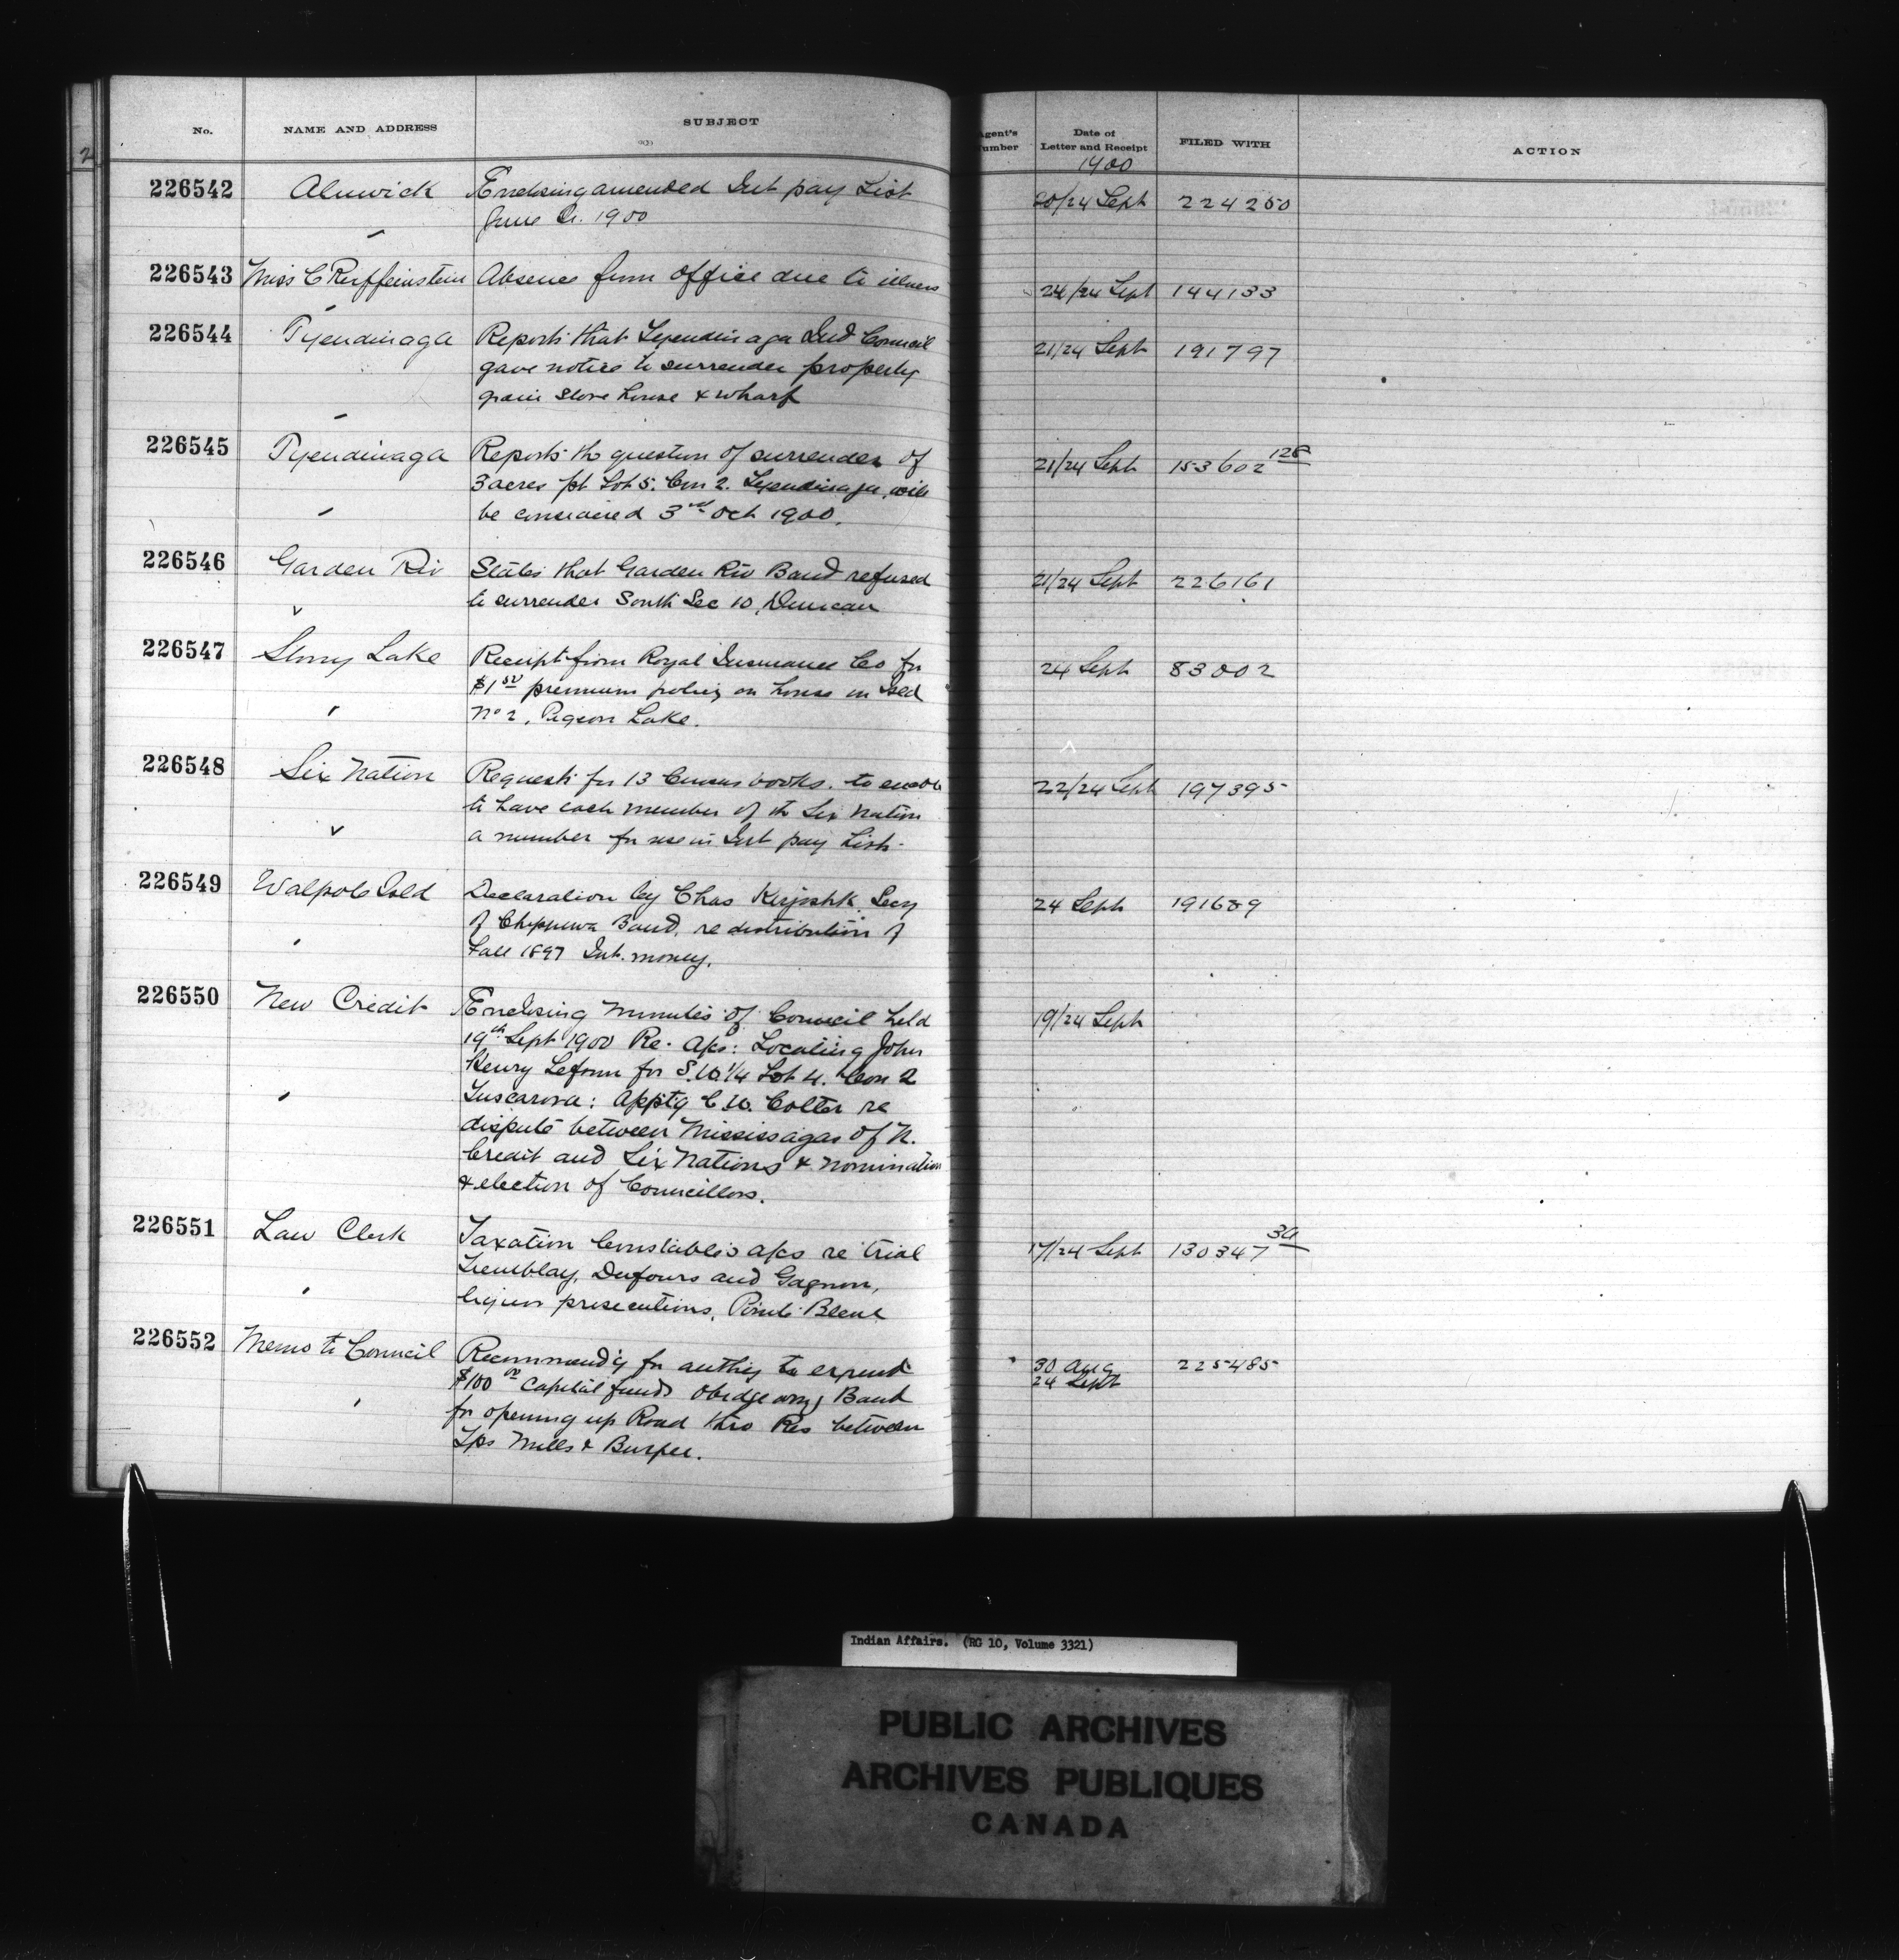 No. NAME AND ADDRESS SUBJECT Agent's Number Date of Letter and Receipt FILED WITH ACTION
1900
2
226542 Alnwick Enclosing amended Int pay List 20/24 Sept 224250
June Qr. 1900
226543 Miss C Reiffeinstein Absence from office due to illness 24/24 Sept 144133
226544 Tyendinaga Reports that Tyendinaga Ind Council 21/24 Sept 191797
gave notice to surrender property
grain store house & wharf
226545 Tyendinaga Reports the question of surrender of 21/24 Sept 153602 128
3 acres pt Lot 5. Con 2. Tyendinaga, will
be considered 3rd Oct 1900.
226546 Garden Riv States that Garden Riv Band refused 21/24 Sept 226161
to surrender South Sec 10, Duncan
226547 Stony Lake Receipt from Royal Insurance Co for 24 Sept 83002
$1 50 premium policy on house on Isld
No 2, Pigeon Lake.
226548 Six Nation Requests for 13 Census books. to enable 22/24 Sept 197395
to have each member of the Six Nation
a number for use in Int pay List.
226549 Walpole Isld Declaration by Chas Secy 24 Sept 191689
of Chippewa Band, re distribution of
Fall 1897 Int. money.
226550 New Credit Enclosing Minutes of Council held 19/24 Sept
19th Sept 1900 Re. Acs: Locating John
Henry Leform for S.W.1/4 Lot 4. Con 2
Tuscarora: Apptg C.W. Colter re
dispute between Mississagas of N.
Credit and Six Nations & nomination
& election of Councillors.
226551 Law Clerk Taxation Constables acs re trial 17/24 Sept 130347 34
Tremblay, Dufours and Gagnon,
liquor prosecutions, Pointe Bleue
226552 Memo to Council Recommend'g for authy to expend 30 Aug 225485
24 Sept
$100 00 Capital funds Obidgewong Band
for opening up Road thro Res between
Tps Mills & Burpee.
Indian Affairs. (RG 10, Volume 3321)
PUBLIC ARCHIVES
ARCHIVES PUBLIQUES
CANADA